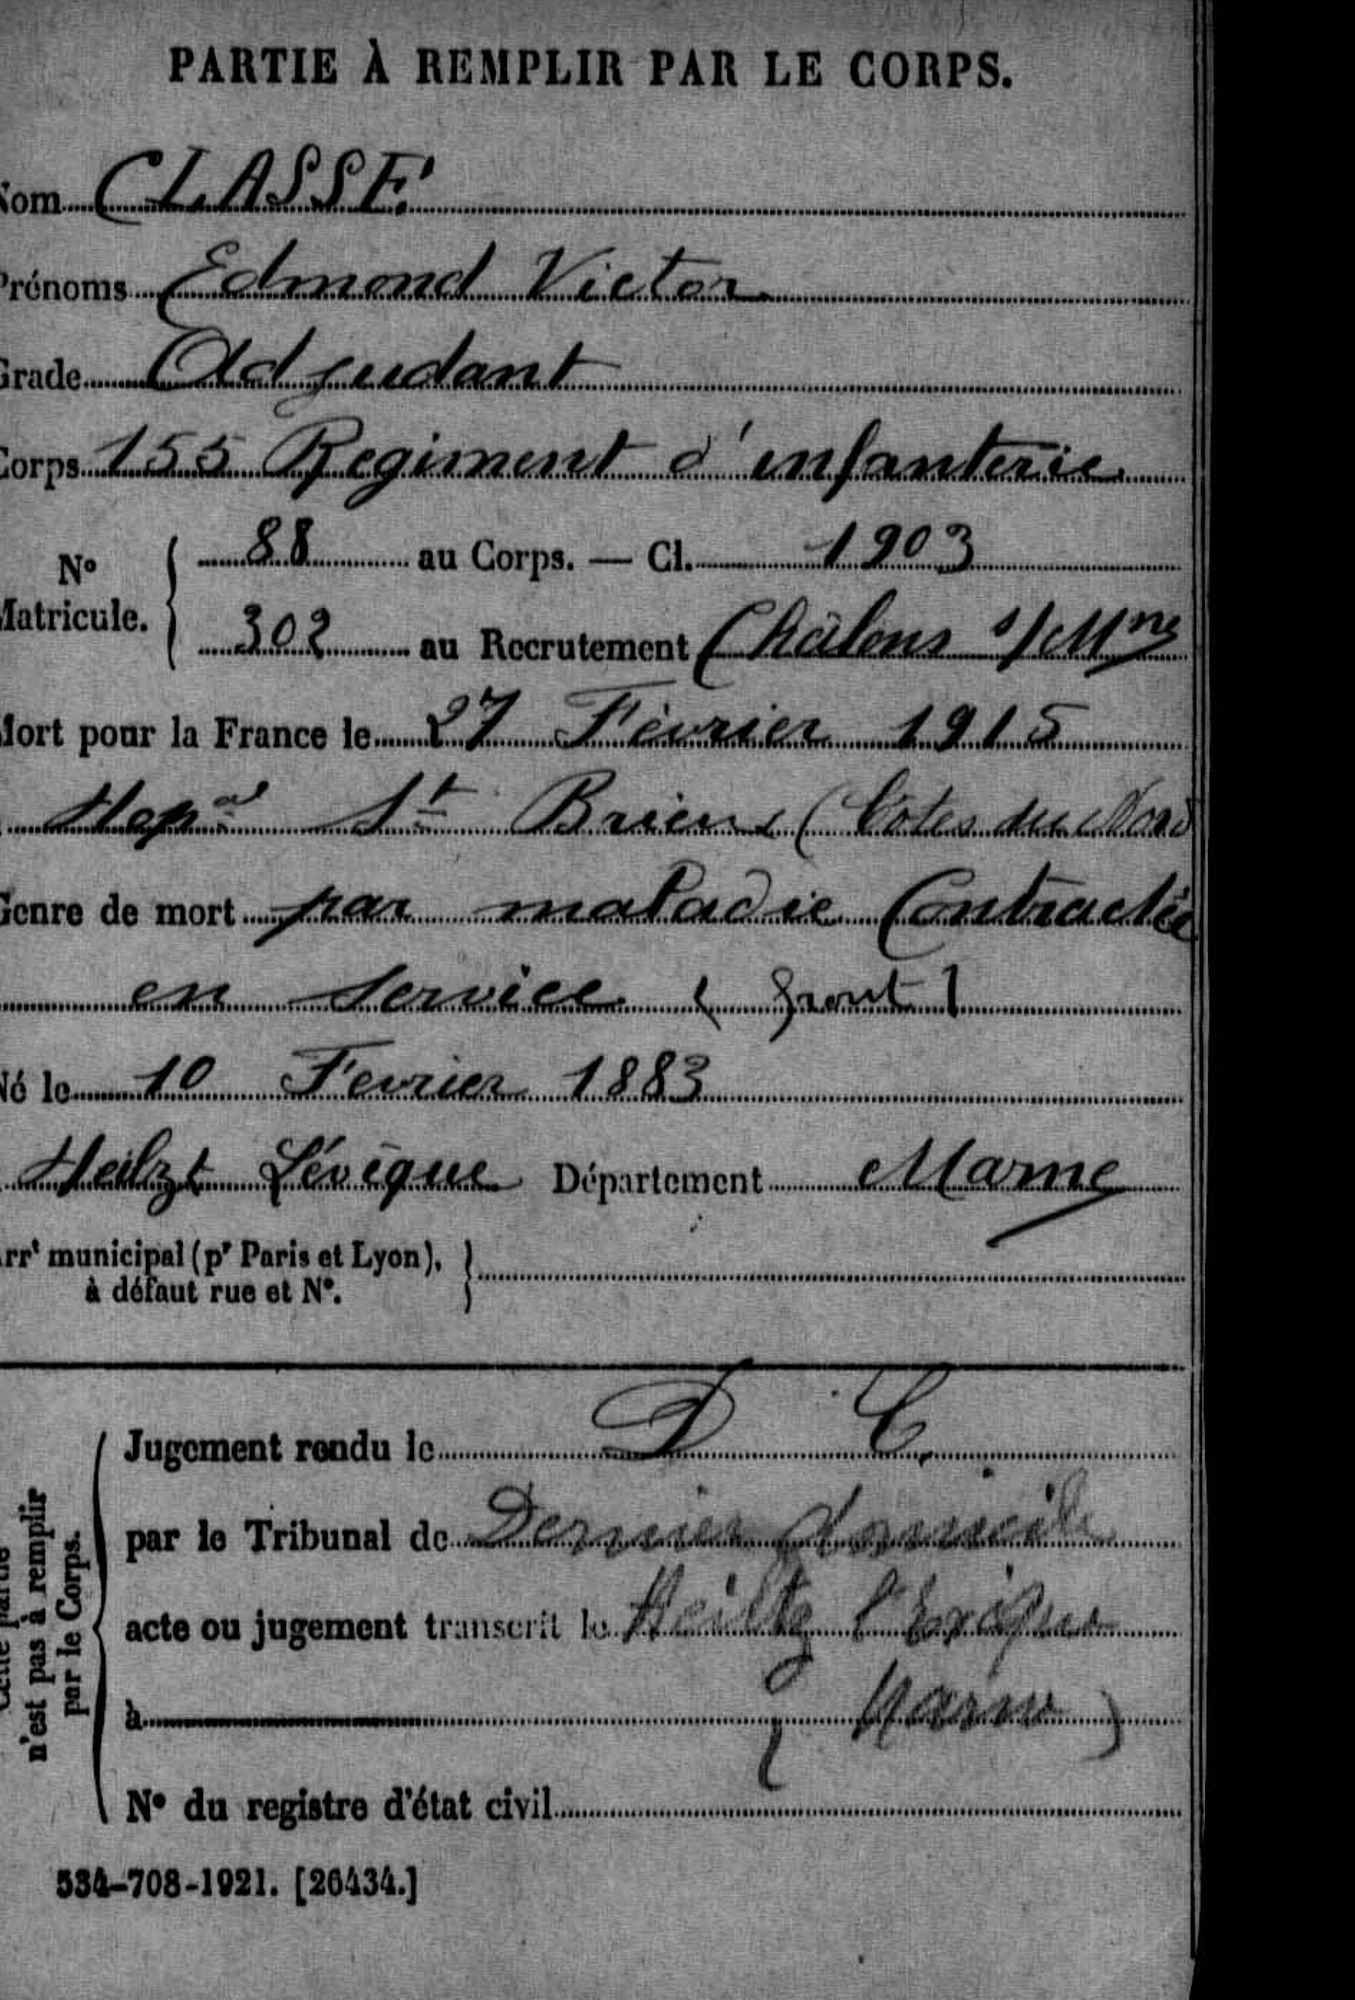 PARTIE À REMPLIR PAR LE CORPS.
Nom CLASSE
Prénoms Edmond Victor
Grade Adjudant
Corps 155 Regiment d'infanterie
N° Matricule. { 88 au Corps. — Cl. 1903
302 au Recrutement Châlons s/Mne
Mort pour la France le 27 Février 1915
Hopal St Brieux (Côtes du Nord
Genre de mort par maladie Contractée
en service (front)
Né le 10 Fevrier 1883
Heilzt Lévêque Département Marne
Arrt municipal (pr Paris et Lyon),
à défaut rue et N°. }
Cette partie
n'est pas à remplir
par le Corps.
Jugement rendu le D C
par le Tribunal de Dernier domicile
acte ou jugement transcrit le Heiltz l'Evêque
à (Marne)
N° du registre d'état civil
534-708-1921. [26434.]